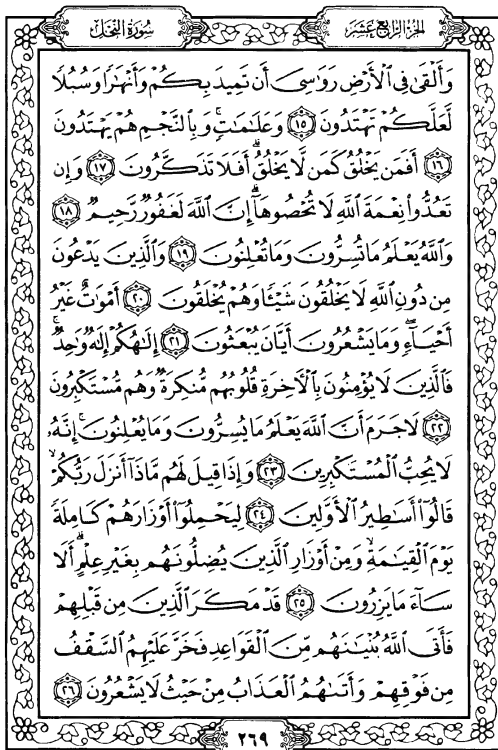 الجزء الرابع عشر
سورة النحل
وَأَلْقَىٰ فِي ٱلْأَرْضِ رَوَٰسِيَ أَن تَمِيدَ بِكُمْ وَأَنْهَٰرًا وَسُبُلًا
لَّعَلَّكُمْ تَهْتَدُونَ ١٥ وَعَلَٰمَٰتٍ ۚ وَبِٱلنَّجْمِ هُمْ يَهْتَدُونَ
١٦ أَفَمَن يَخْلُقُ كَمَن لَّا يَخْلُقُ ۗ أَفَلَا تَذَكَّرُونَ ١٧ وَإِن
تَعُدُّوا۟ نِعْمَةَ ٱللَّهِ لَا تُحْصُوهَآ ۗ إِنَّ ٱللَّهَ لَغَفُورٌ رَّحِيمٌ ١٨
وَٱللَّهُ يَعْلَمُ مَا تُسِرُّونَ وَمَا تُعْلِنُونَ ١٩ وَٱلَّذِينَ يَدْعُونَ
مِن دُونِ ٱللَّهِ لَا يَخْلُقُونَ شَيْـًٔا وَهُمْ يُخْلَقُونَ ٢٠ أَمْوَٰتٌ غَيْرُ
أَحْيَآءٍ ۖ وَمَا يَشْعُرُونَ أَيَّانَ يُبْعَثُونَ ٢١ إِلَٰهُكُمْ إِلَٰهٌ وَٰحِدٌ ۚ
فَٱلَّذِينَ لَا يُؤْمِنُونَ بِٱلْءَاخِرَةِ قُلُوبُهُم مُّنكِرَةٌ وَهُم مُّسْتَكْبِرُونَ
٢٢ لَا جَرَمَ أَنَّ ٱللَّهَ يَعْلَمُ مَا يُسِرُّونَ وَمَا يُعْلِنُونَ ۚ إِنَّهُۥ
لَا يُحِبُّ ٱلْمُسْتَكْبِرِينَ ٢٣ وَإِذَا قِيلَ لَهُم مَّاذَآ أَنزَلَ رَبُّكُمْ ۙ
قَالُوٓا۟ أَسَٰطِيرُ ٱلْأَوَّلِينَ ٢٤ لِيَحْمِلُوٓا۟ أَوْزَارَهُمْ كَامِلَةً
يَوْمَ ٱلْقِيَٰمَةِ ۙ وَمِنْ أَوْزَارِ ٱلَّذِينَ يُضِلُّونَهُم بِغَيْرِ عِلْمٍ ۗ أَلَا
سَآءَ مَا يَزِرُونَ ٢٥ قَدْ مَكَرَ ٱلَّذِينَ مِن قَبْلِهِمْ
فَأَتَى ٱللَّهُ بُنْيَٰنَهُم مِّنَ ٱلْقَوَاعِدِ فَخَرَّ عَلَيْهِمُ ٱلسَّقْفُ
مِن فَوْقِهِمْ وَأَتَىٰهُمُ ٱلْعَذَابُ مِنْ حَيْثُ لَا يَشْعُرُونَ ٢٦
٢٦٩